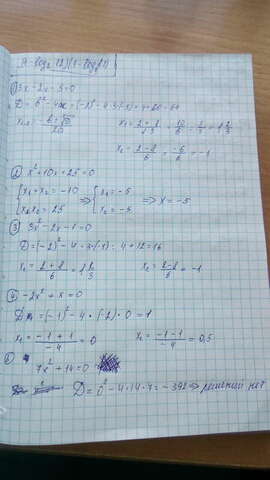 ① 3x²-2x-5=0
D=b²-4ac=(-2)²-4·3·(-5)=4+60=64
x₁,₂=(-b±√D)/2a x₁=(2+8)/(2·3)=10/6=5/3=1 2/3
x₂=(2-8)/6=-6/6=-1
② x²+10x+25=0
{x₁+x₂=-10 => {x₁=-5 => x=-5
{x₁x₂=25 {x₂=-5
③ 3x²-2x-1=0
D=(-2)²-4·3·(-1)=4+12=16
x₁=(2+8)/6=1 2/3 x₂=(2-8)/6=-1
④ -2x²+x=0
D=(-1)²-4·(-2)·0=1
x₁=(-1+1)/-4=0 x₂=(-1-1)/-4=0,5
7x²+14=0
D=0²-4·14·7=-392=>решений нет